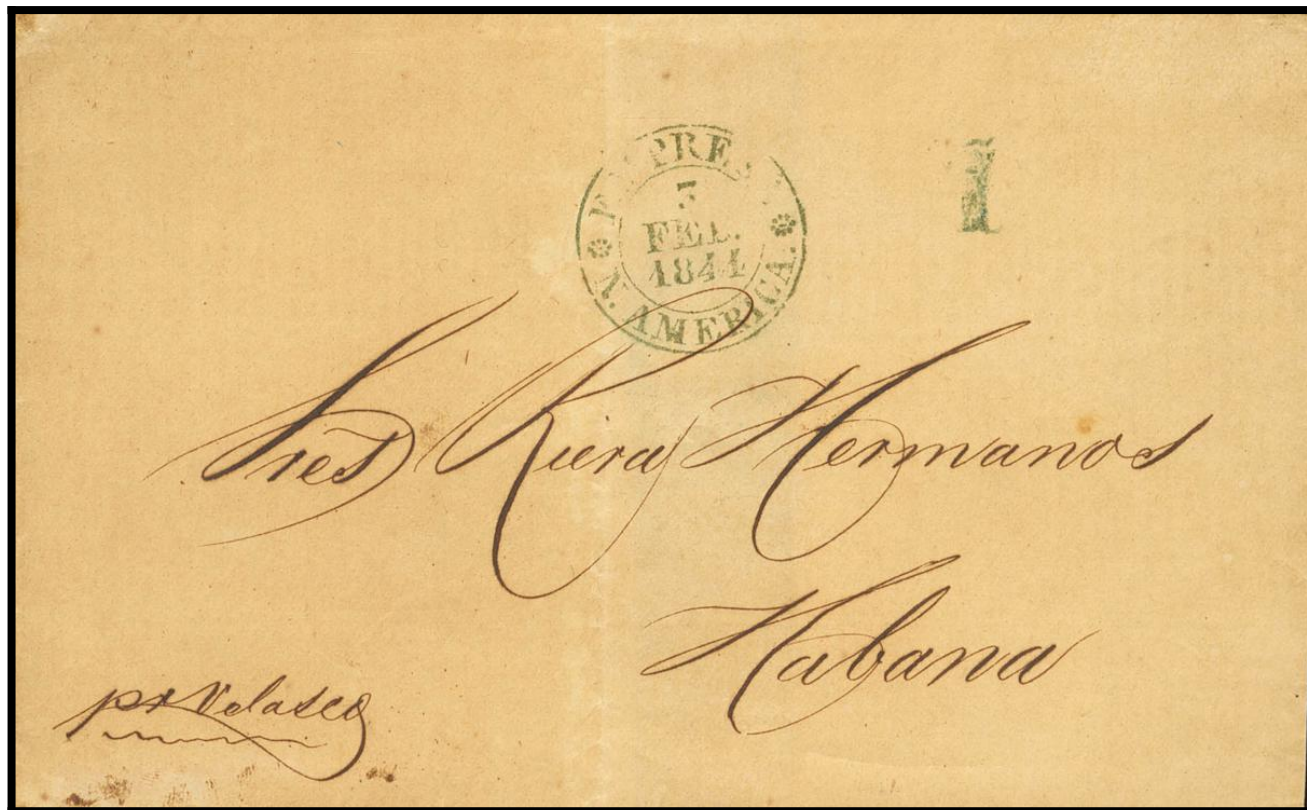 EMPRESA
5
FEB.
1844
N. AMERICA.
1
Sres Riera Hermanos
Habana
pr Velasco